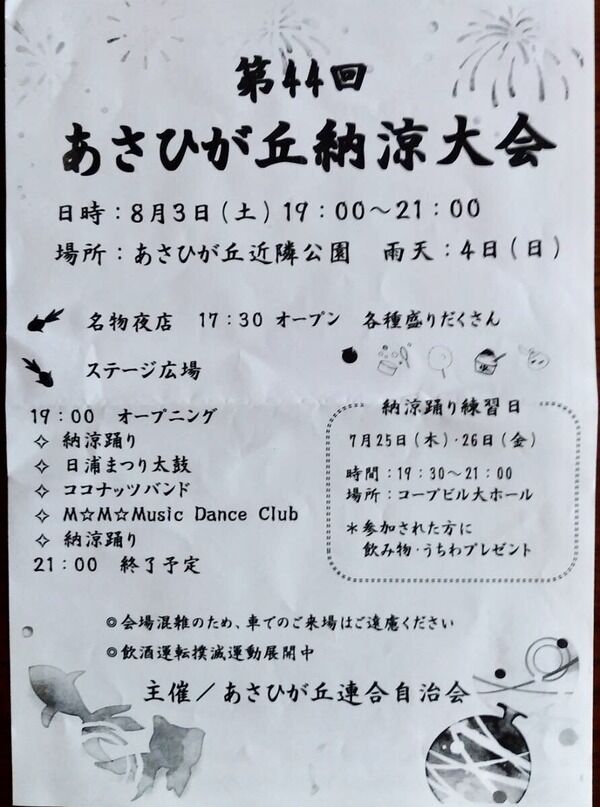 第44回
あさひが丘納涼大会
日時：8月3日（土）19：00～21：00
場所：あさひが丘近隣公園　雨天：4日（日）
名物夜店　17：30 オープン　各種盛りだくさん
ステージ広場
19：00　オープニング
✧ 納涼踊り
✧ 日浦まつり太鼓
✧ ココナッツバンド
✧ M☆M☆Music Dance Club
✧ 納涼踊り
21：00　終了予定
納涼踊り練習日
7月25日（木）・26日（金）
時間：19：30～21：00
場所：コープビル大ホール
＊参加された方に
飲み物・うちわプレゼント
◎会場混雑のため、車でのご来場はご遠慮ください
◎飲酒運転撲滅運動展開中
主催／あさひが丘連合自治会